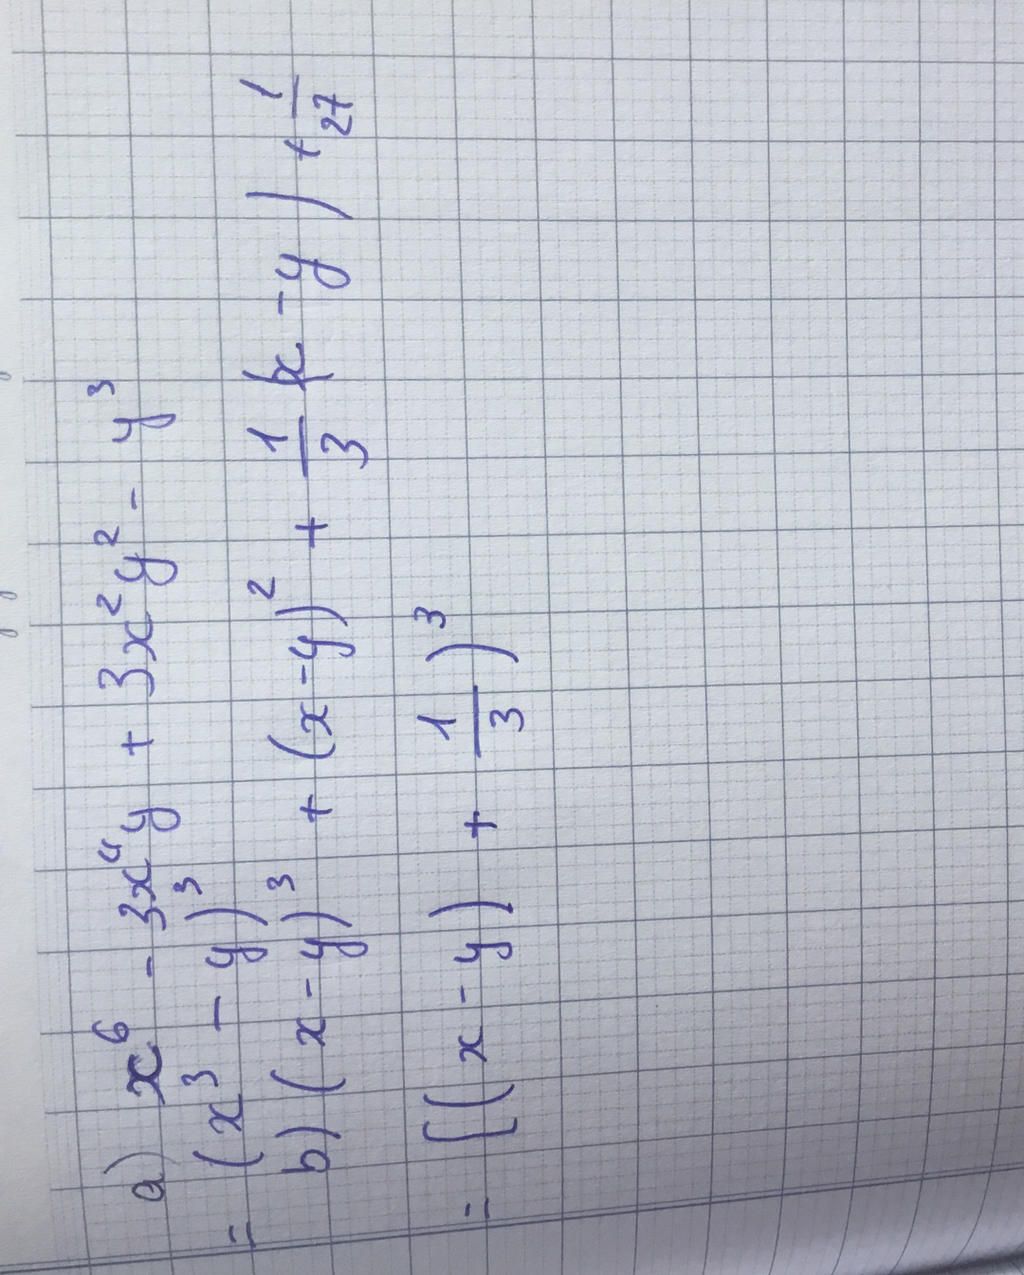 a) x⁶ - 3x⁴y + 3x²y² - y³
= (x³ - y)³
b) (x - y)³ + (x - y)² + 1/3 (x - y) + 1/27
= [(x - y) + 1/3)³